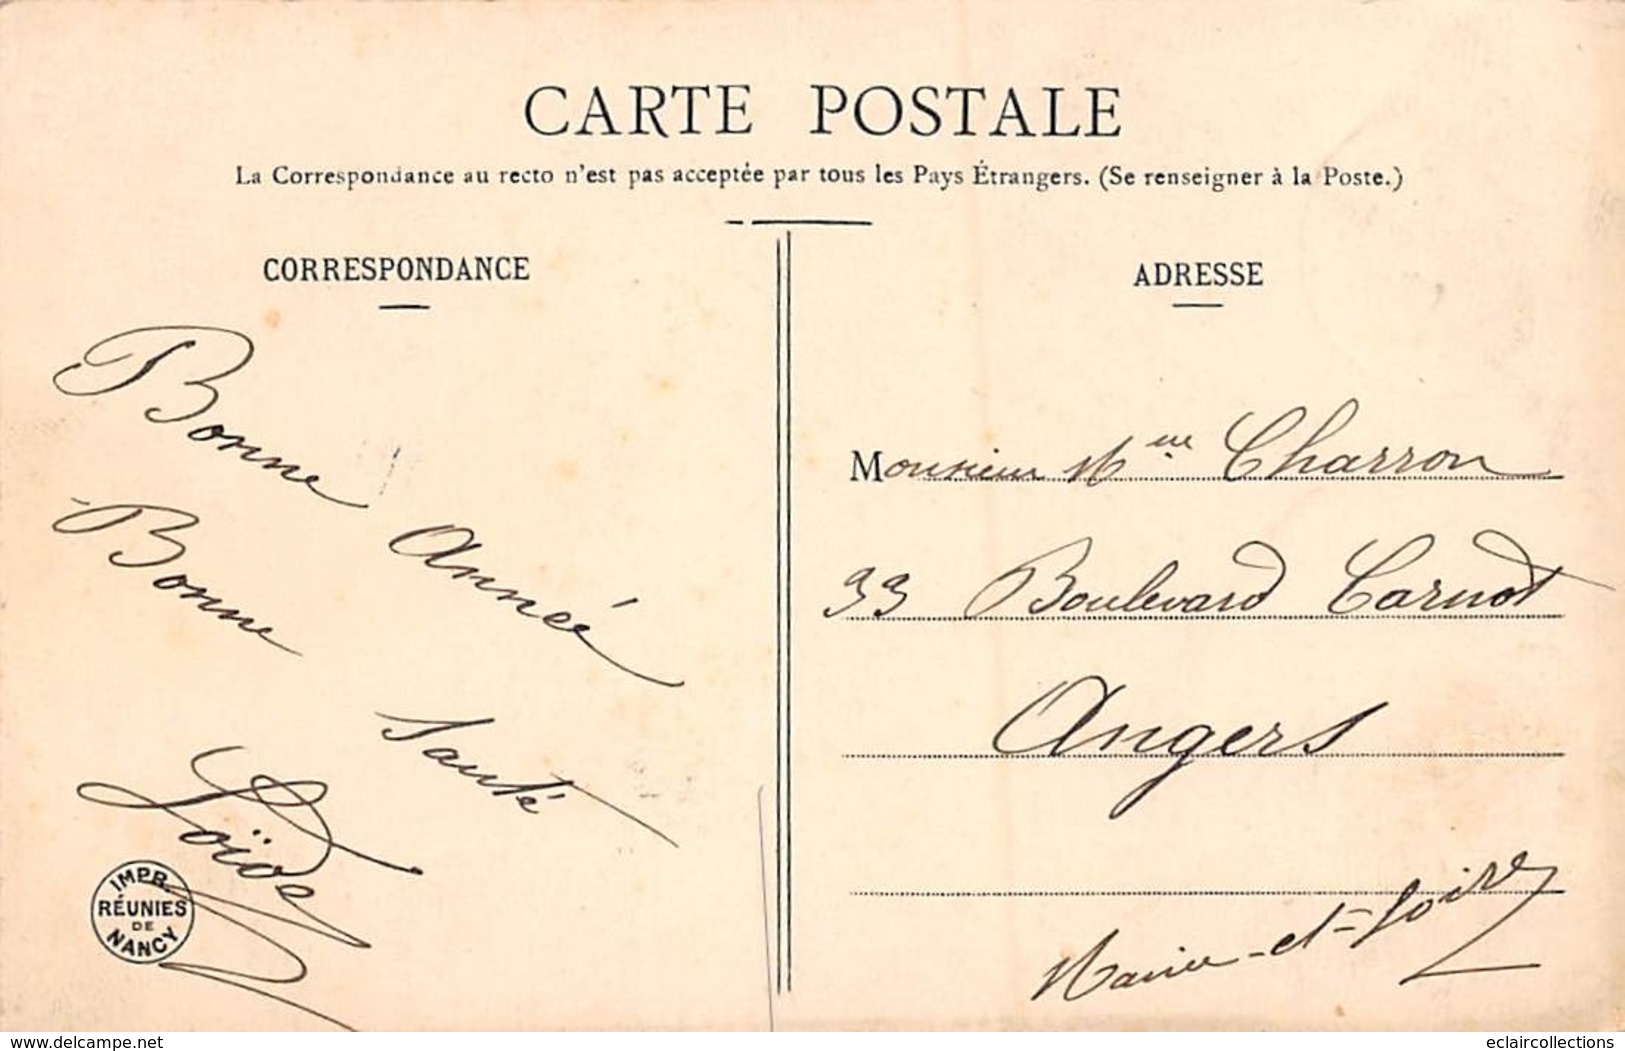 CARTE POSTALE
La Correspondance au recto n'est pas acceptée par tous les Pays Étrangers. (Se renseigner à la Poste.)
CORRESPONDANCE
Bonne Année
Bonne Santé
IMPR.
RÉUNIES
DE
NANCY
ADRESSE
Monsieur Mme Charron
33 Boulevard Carnot
Angers
Maine-et-Loire
www.delcampe.net
eclaircollections